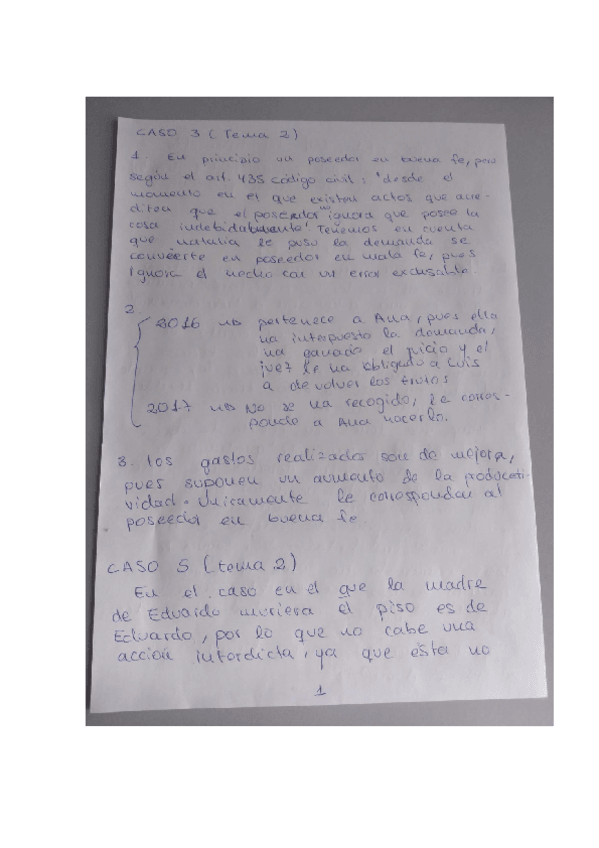 CASO 3 (Tema 2)
1. En principio un poseedor en buena fe, pero
según el art. 435 código civil: "desde el
momento en el que existan actos que acre-
diten que el poseedor no ignora que posee la
cosa indebidamente" Tenemos en cuenta
que natalia le puso la demanda se
convierte en poseedor en mala fe, pues
ignora el hecho con un error excusable.
2
2016 pertenece a Ana, pues ella
ha interpuesto la demanda,
ha ganado el juicio y el
juez le ha obligado a Luis
a devolver los frutos
2017 No se ha recogido, le corres-
ponde a Ana hacerlo.
3. Los gastos realizados son de mejora,
pues suponen un aumento de la producti-
vidad. Únicamente le corresponden al
poseedor en buena fe
CASO 5 (tema 2)
En el caso en el que la madre
de Eduardo muriera el piso es de
Eduardo, por lo que no cabe una
acción interdicta, ya que esta no
1